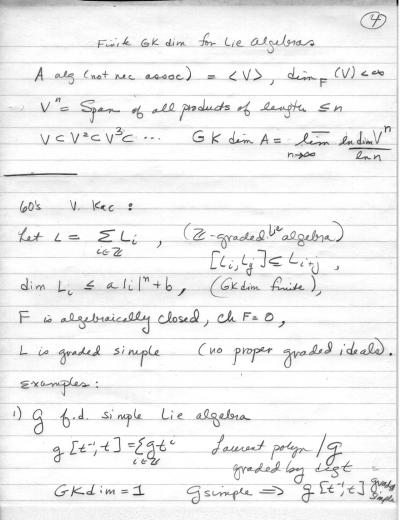 4
Finite GK dim for Lie algebras
A alg (not nec assoc) = <V>, dim_F (V) < ∞
V^n = Span of all products of length ≤ n
V ⊂ V² ⊂ V³ ⊂ ··· GK dim A = lim̅_{n→∞} ln dim V^n / ln n
60's V. Kac :
Let L = Σ_{i∈Z} L_i , (Z-graded Lie algebra)
[L_i, L_j] ⊆ L_{i+j} ,
dim L_i ≤ a|i|^n + b, (GK dim finite),
F is algebraically closed, ch F = 0,
L is graded simple (no proper graded ideals).
Examples :
1) g f.d. simple Lie algebra
g[t⁻¹, t] = Σ_{i∈Z} g t^i Laurent polyn / g
graded by deg t
GK dim = 1 g simple ⟹ g[t⁻¹, t] graded simple